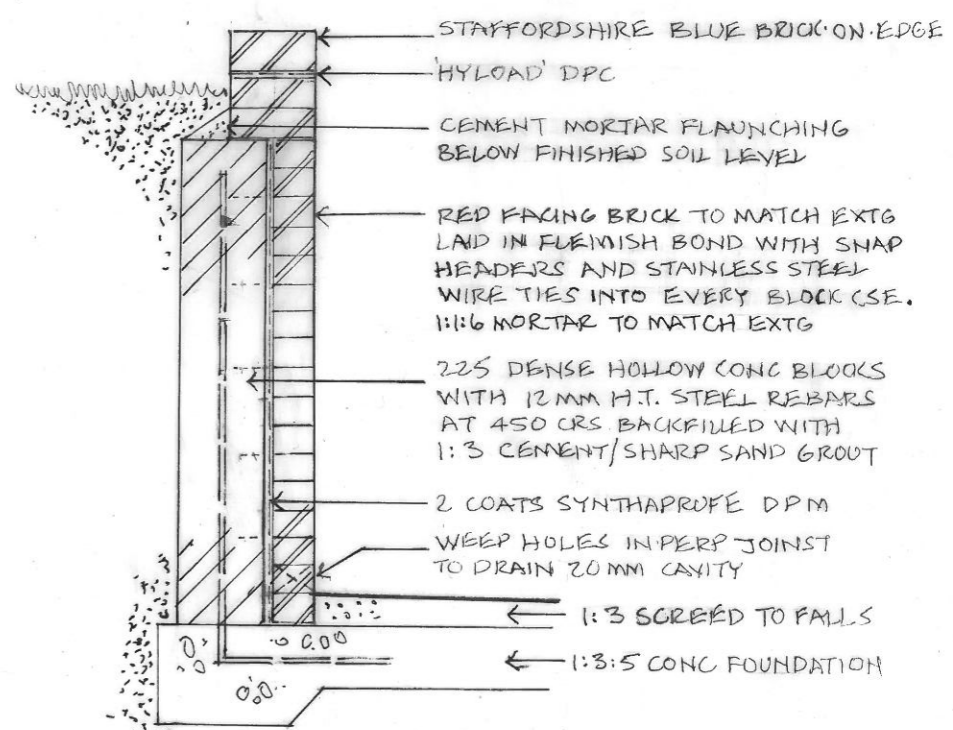 STAFFORDSHIRE BLUE BRICK·ON·EDGE
'HYLOAD' DPC
CEMENT MORTAR FLAUNCHING
BELOW FINISHED SOIL LEVEL
RED FACING BRICK TO MATCH EXTG
LAID IN FLEMISH BOND WITH SNAP
HEADERS AND STAINLESS STEEL
WIRE TIES INTO EVERY BLOCK CSE.
1:1:6 MORTAR TO MATCH EXTG
225 DENSE HOLLOW CONC BLOCKS
WITH 12MM H.T. STEEL REBARS
AT 450 CRS BACKFILLED WITH
1:3 CEMENT/SHARP SAND GROUT
2 COATS SYNTHAPRUFE DPM
WEEP HOLES IN PERP JOINST
TO DRAIN 20MM CAVITY
1:3 SCREED TO FALLS
1:3:5 CONC FOUNDATION